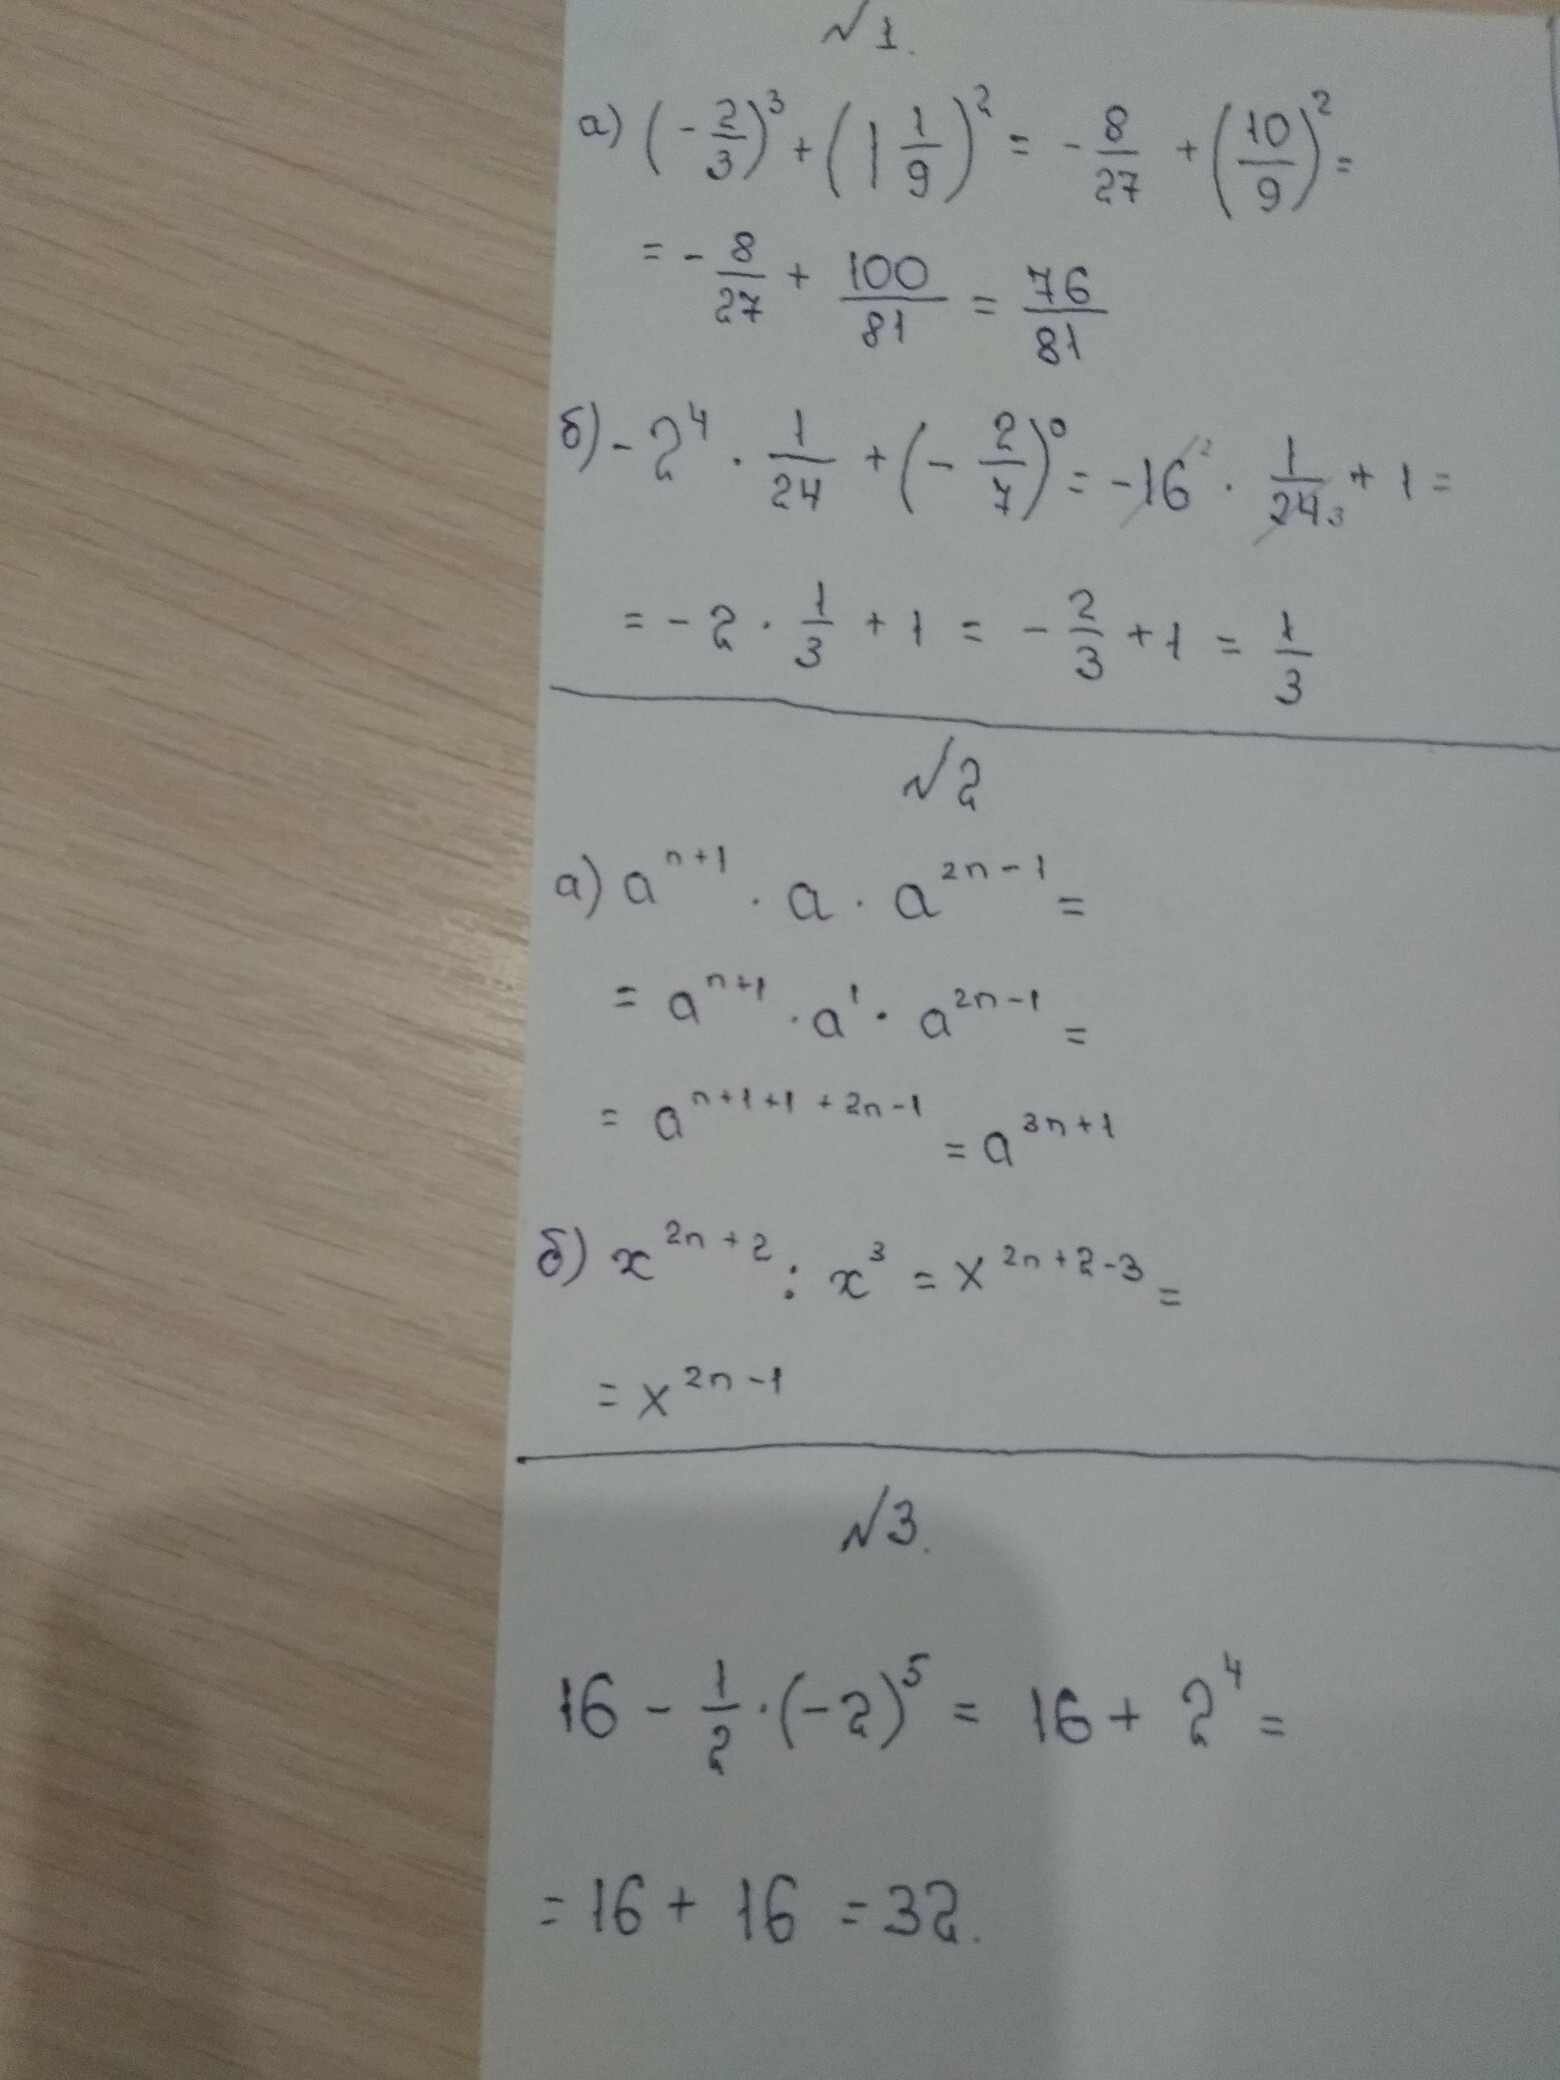 №1.
а) (-2/3)^3 + (1 1/9)^2 = -8/27 + (10/9)^2 =
= -8/27 + 100/81 = 76/81
б) -2^4 · 1/24 + (-2/7)^0 = -16 2 · 1/24 3 + 1 =
= -2 · 1/3 + 1 = -2/3 + 1 = 1/3
№2
а) a^(n+1) · a · a^(2n-1) =
= a^(n+1) · a^1 · a^(2n-1) =
= a^(n+1+1+2n-1) = a^(3n+1)
б) x^(2n+2) : x^3 = x^(2n+2-3) =
= x^(2n-1)
№3.
16 - 1/2 · (-2)^5 = 16 + 2^4 =
= 16 + 16 = 32.